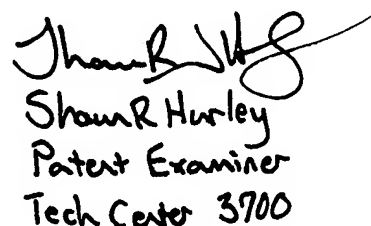 Shaun R Hurley
Shaun R Hurley
Patent Examiner
Tech Center 3700